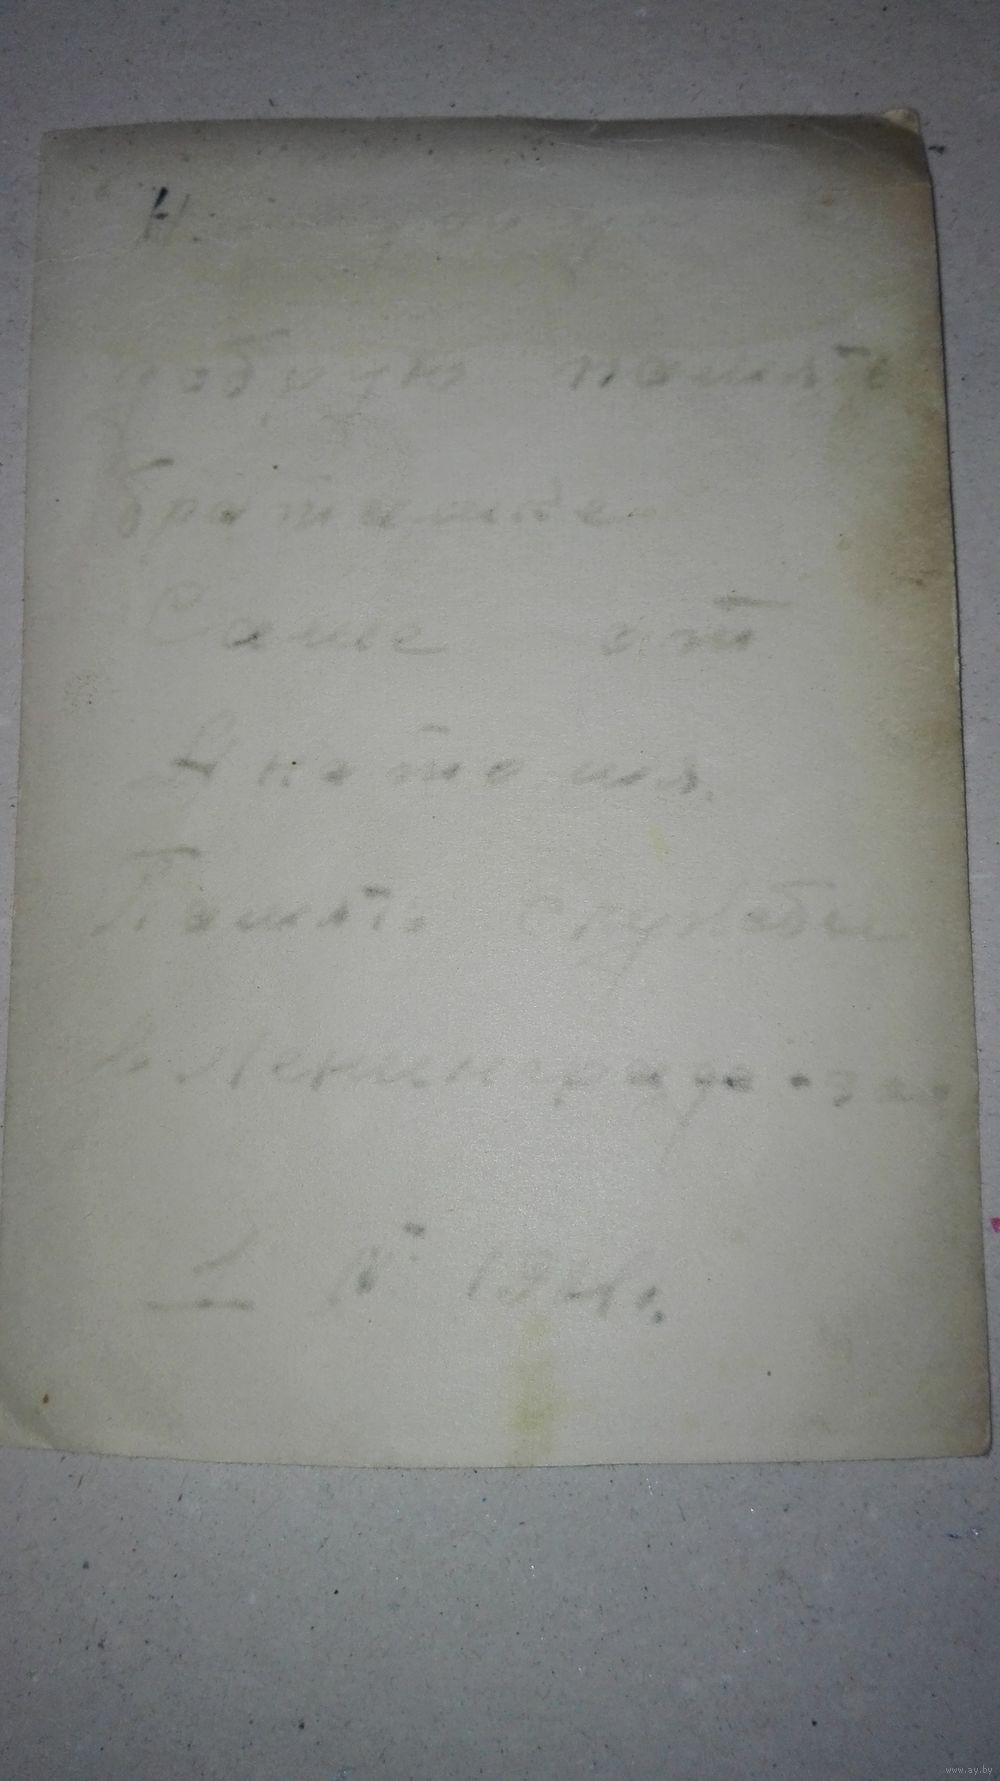 На
добрую память
братишке
Саше от
Анатолия.
Память службы
в Ленинграде
1 1941.
www.ay.by